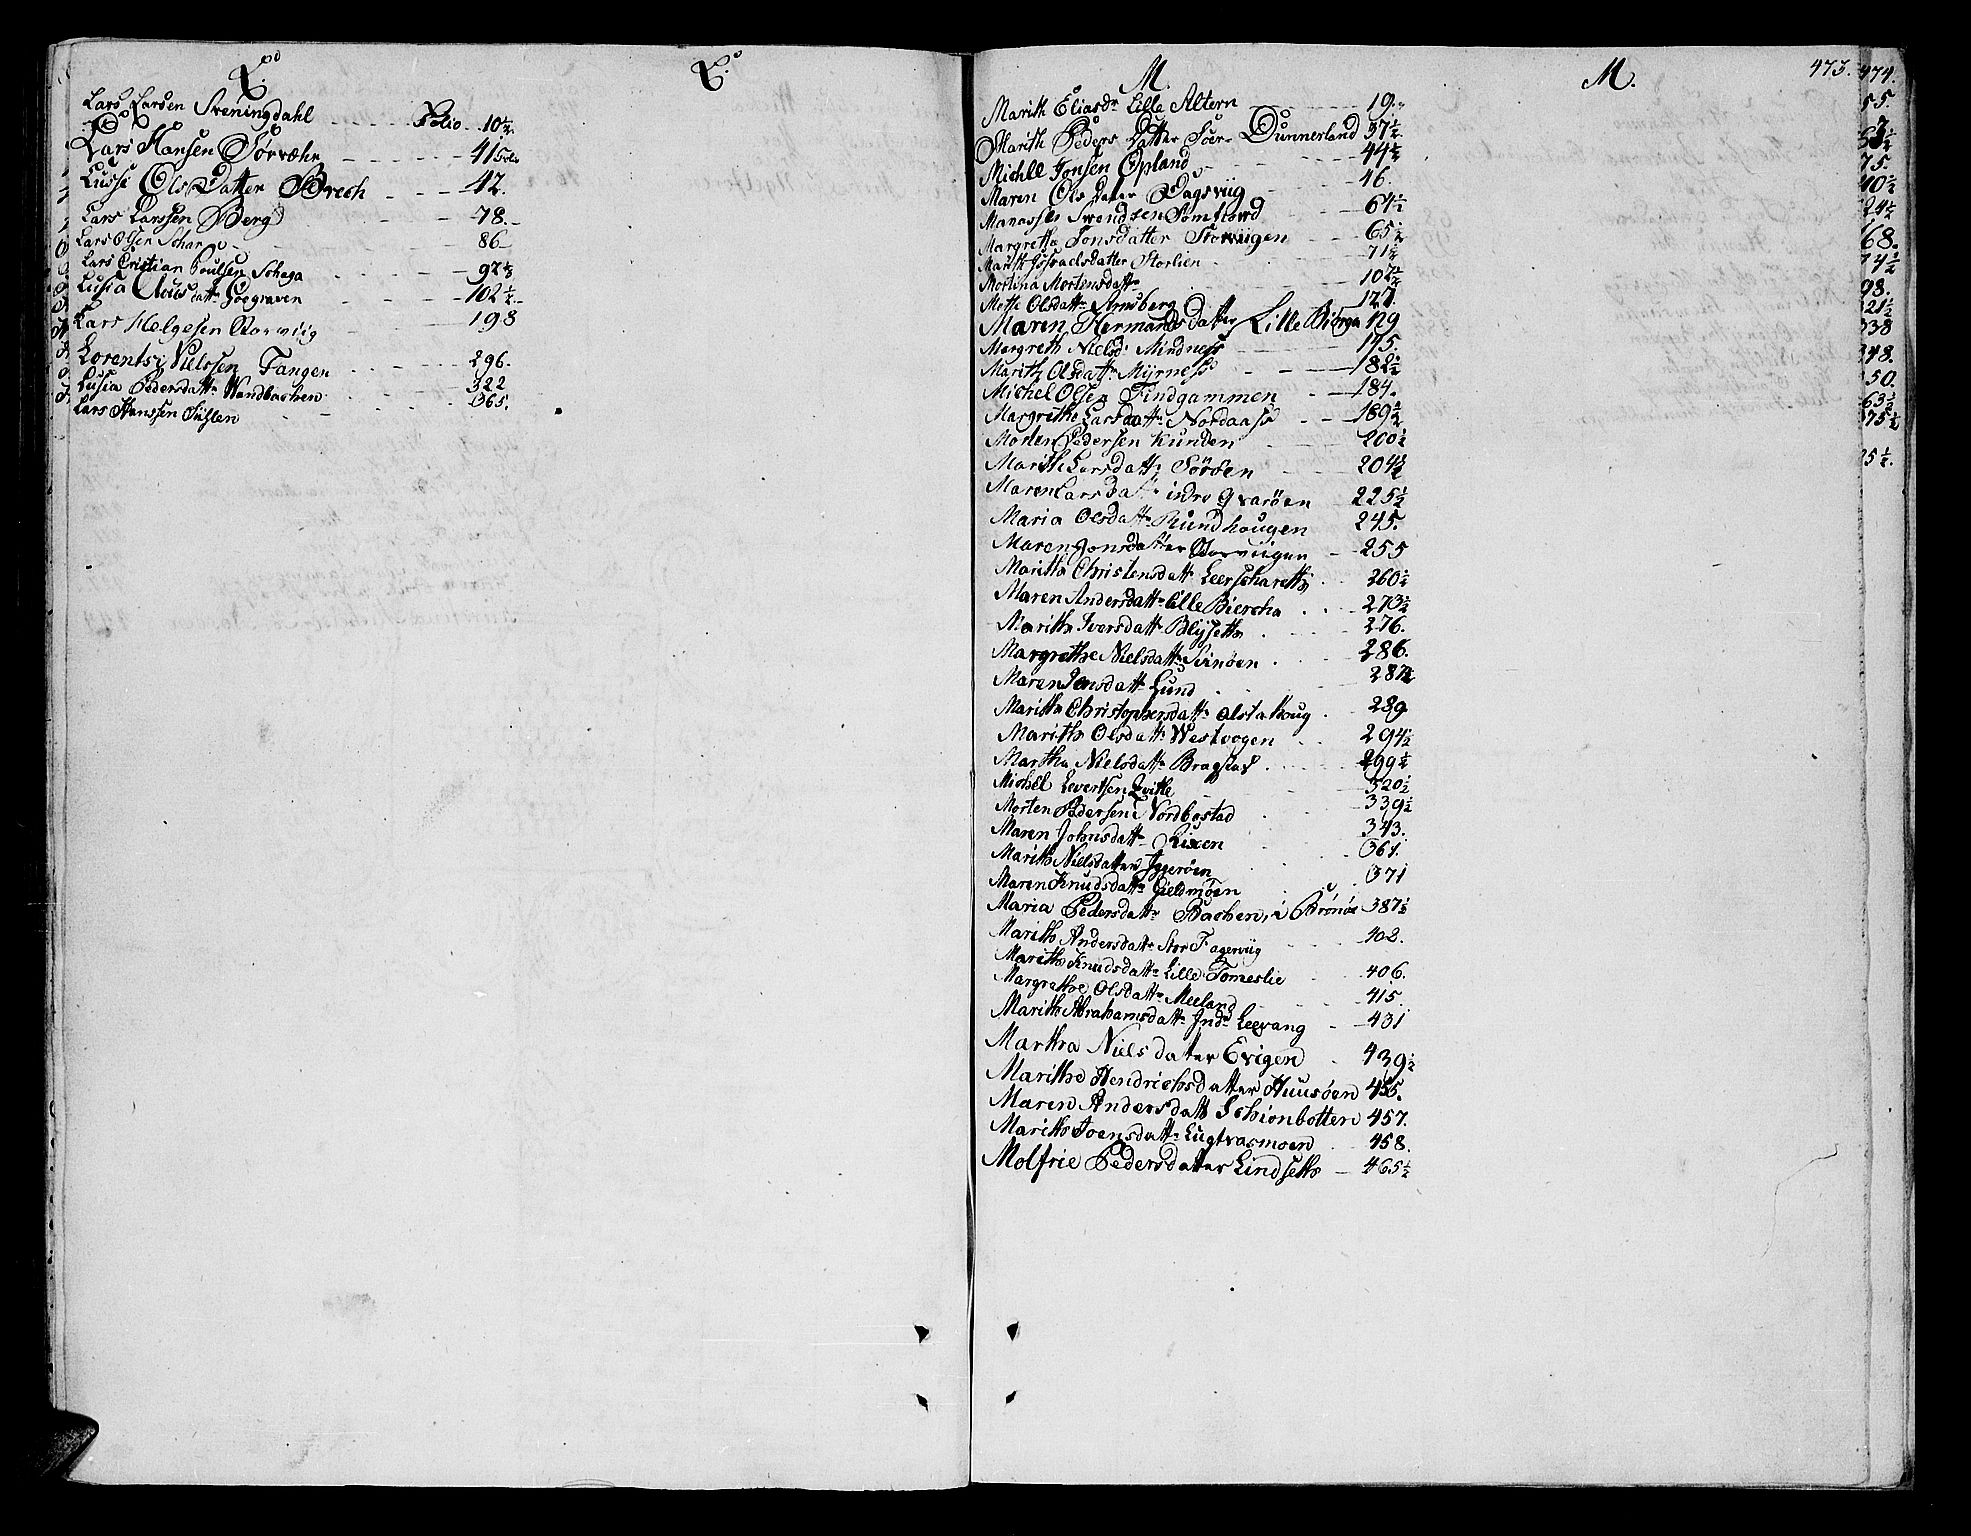 L.
Lars Larsen Sveningdahl Folio 10½
Lars Hansen Sørvæhr 41
Lussi Ols Datter Brech 42.
Lars Larssen Berg 78.
Lars Olsen Schar 86
Lars Cristian Poulsen Schaga 92½
Lusia Clausdattr 102½
Lars Helgesen Storviig 198
Lorentz Nielssen Tangen 296.
Lusia Pedersdattr Wandbachen 322
Lars Hanssen 365.
L.
M.
Marith Eliasdr Lille Altern 19.
Marith Peders Datter Soer-Dunnerland 37½.
Michll Jonsen Opland 44½
Maren Ols Dater Dagsviig 46.
Manasses Svendsen Somhovd 64½
Margretha Jonsdatter Storviigen 65½
Marith Jssraelsdatter Storlien 71½
Mortina Mortensdattr 102½
Mette Olsdattr Arnsberg 127.
Maren Hermandsdatter Lille Bierga 129
Margreth Nielsdr Mindness 175.
Marith Olsdattr Myrness 182½
Michel Olsen Findgammen 184.
Margrithe Larsdattr Nordaass 189½
Morten Pedersen Kunden 200½
Marith Larsdattr Sörden 204½
Maren Larsdattr indre Qvarøen 225½
Maria Olsdattr Rundhougen 245.
Maren Jonsdatter Storviigen 255
Maritha Christensdattr Leerscharetti 260½
Maren Andersdattr Lille Biercha 273½
Maritha Iversdattr Blysetta 276.
Margrethe Nielsdattr Svinöen 286.
Maren Jensdattr Lund 287½
Maritha Christophersdattr Alstahoug 289
Marith Olsdattr Westvogen 294½
Martha Nielsdattr Bragstad 299½
Michel Evertsen Qvitle 320½
Morten Pedersen Nordbostad 339½
Maren Johnsdattr Rixen 343.
Marith Nielsdatter Jggerøen 361.
Maren Knudsdattr Gieldmöen 371
Maria Pedersdattr Bachen, i Brönöe 387½
Marith Andersdattr Stor Fagerviig 402.
Marith Knudsdattr Lille Tomeslie 406.
Margrethe Olsdattr Meeland 415.
Marith Abrahamsdattr Jndr Leevang 431
Martha Nielsdater Evigen 439½
Marithe Hendrichsdatter Huusöen 455.
Maren Andersdatt Schionbotten 457.
Marith Joensdattr Lugtvasmoen 458.
Molfrie Pedersdatter Lindseth 465½
M.
473.
474.